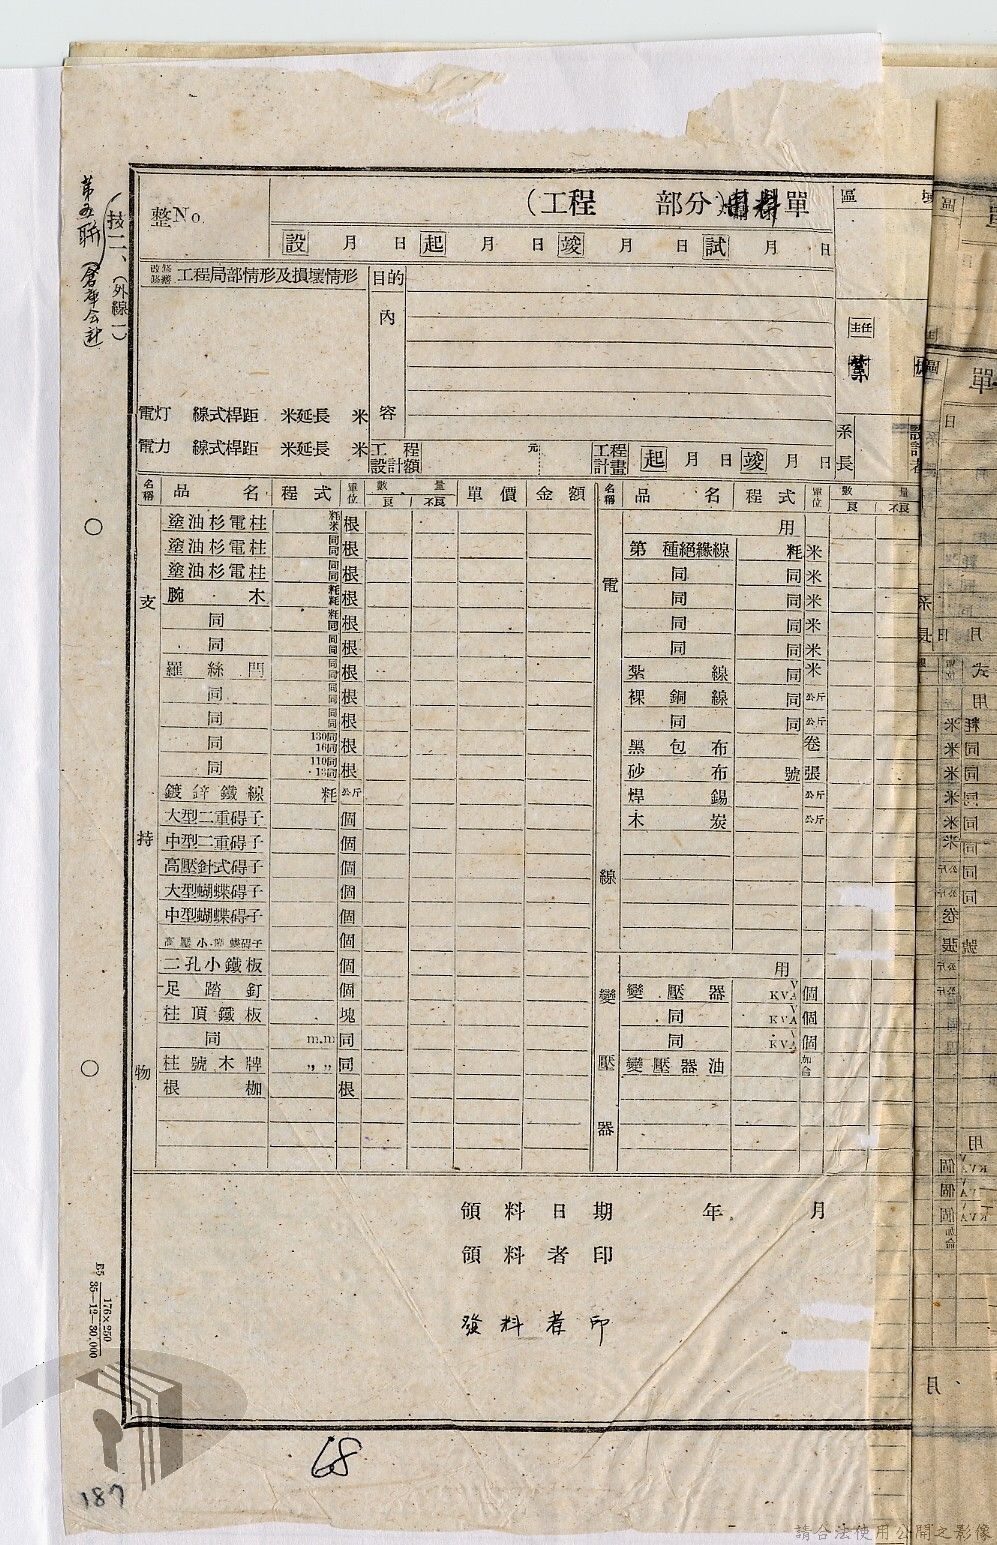 第五聯(倉庫会計)
技二、(外線一)
整No.
(工程 部分)用料單
區 域
設 月 日 起 月 日 竣 月 日 試 月 日
工程局部情形及損壞情形
目的
內
容
主任
電灯 線式桿距 米延長 米
電力 線式桿距 米延長 米
工程設計額 元
工程計畫 起 月 日 竣 月 日
系長
設計者
名稱 品名 程式 單位 數量 良 不良 單價 金額
支持物
塗油杉電柱 粍米 根
塗油杉電柱 同同 根
塗油杉電柱 同同 根
腕木 粍粍 根
同 粍同 根
同 同同 根
羅絲閂 同同 根
同 同同 根
同 同同 根
同 130同 16同 根
同 110同 13同 根
鍍鋅鐵線 粍 公斤
大型二重碍子 個
中型二重碍子 個
高壓針式碍子 個
大型蝴蝶碍子 個
中型蝴蝶碍子 個
高壓小蝴蝶碍子 個
二孔小鐵板 個
足踏釘 個
柱頂鐵板 塊
同 m.m 同
柱號木牌 〃〃 同
根枷 根
名稱 品名 程式 單位 數量 良 不良
電線
用
第 種絕緣線 粍 米
同 同 米
同 同 米
同 同 米
同 同 米
紮線 同 米
裸銅線 同 公斤
同 同 公斤
黑包布 卷
砂布 號 張
焊錫 公斤
木炭 公斤
變壓器
用
變壓器 V KVA 個
同 V KVA 個
同 V KVA 個
變壓器油 加侖
領料日期 年 月
領料者印
發料者印
176×250
35—12—30,000
68
187
請合法使用公開之影像